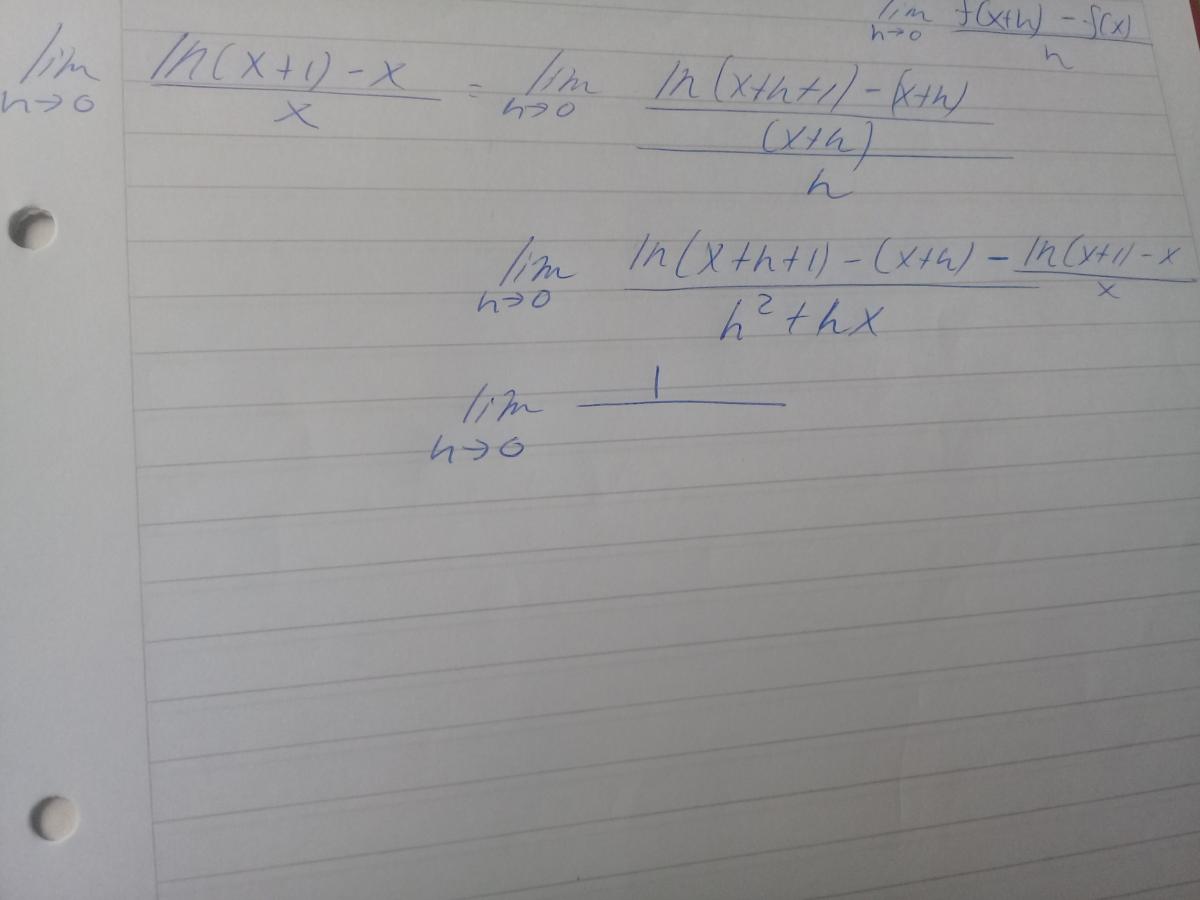 lim h→0 f(x+h) - f(x) / h
lim h→0 ln(x+1) - x / x = lim h→0 ln(x+h+1) - (x+h) / (x+h) / h
lim h→0 ln(x+h+1) - (x+h) - ln(x+1) - x / x / h² + hx
lim h→0 1